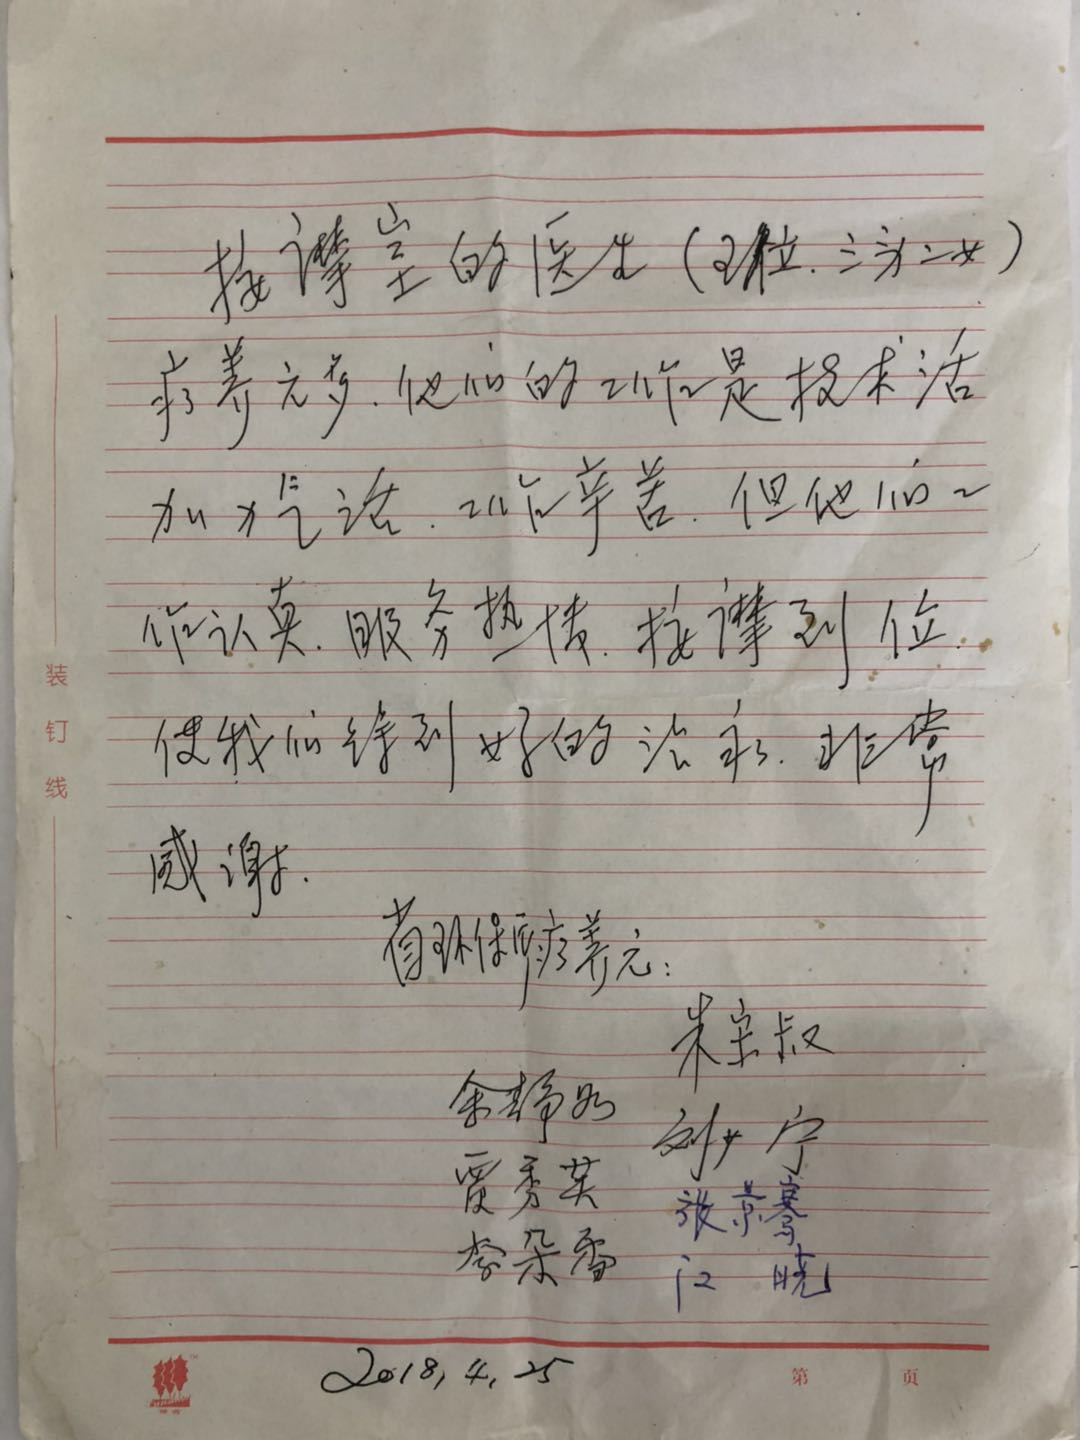 按摩室的医生(五位.三男二女)
疗养元多.他们的工作是技术活
加力气活.工作辛苦.但他们工
作认真.服务热情.按摩到位.
使我们得到好的治疗.非常
感谢.
省环保所疗养元:
朱宗叔
余静如
刘少宁
贾秀英
张景骞
李朵雪
江晓
2018,4,25
装钉线
第 页